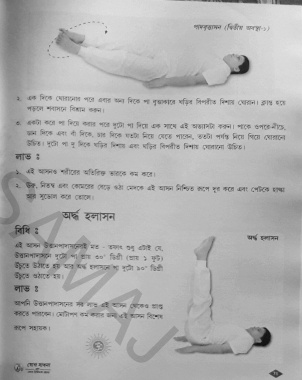 পাদবৃত্তাসন (দ্বিতীয় অবস্থা-১)
২. এক দিকে ঘোরানোর পরে এবার অন্য দিকে পা বৃত্তাকারে ঘড়ির বিপরীত দিশায় ঘোরান। ক্লান্ত হয়ে
পড়লে শবাসনে বিশ্রাম করুন।
৩. একটা করে পা দিয়ে করার পরে দুটো পা দিয়ে এক সাথে এই অভ্যাসটা করুন। পাকে ওপরে-নীচে,
ডান দিকে এবং বাঁ দিকে, চার দিকে যতটা নিয়ে যেতে পারেন, ততটা পর্যন্ত নিয়ে গিয়ে ঘোরানো
উচিত। দুটো পা দু দিকে ঘড়ির দিশায় এবং ঘড়ির বিপরীত দিশায় ঘোরানো উচিত।
লাভ ঃ
১. এই আসনও শরীরের অতিরিক্ত ভারকে কম করে।
২. উরু, নিতম্ব এবং কোমরের বেড়ে ওঠা মেদকে এই আসন নিশ্চিত রূপে দূর করে এবং পেটকে হাল্কা
আর সুডোল করে তোলে।
অর্দ্ধ হলাসন
বিধি ঃ
অর্দ্ধ হলাসন
এই আসন উত্তানপাদাসনেরই মত । তফাৎ শুধু এটাই যে,
উত্তানপাদাসনে দুটো পা প্রায় ৩০° ডিগ্রী (প্রায় ১ ফুট)
উঁচুতে উঠাতে হয় আর অর্দ্ধ হলাসনে পা দুটো ৯০° ডিগ্রী
উঁচুতে ওঠাতে হয়।
লাভ ঃ
আপনি উত্তানপাদাসনের সব লাভ এই আসন থেকেও প্রাপ্ত
করতে পারবেন। মোটাপা কম করার জন্য এই আসন বিশেষ
রূপে সহায়ক।
যোগ সাধনা
SAMAJ